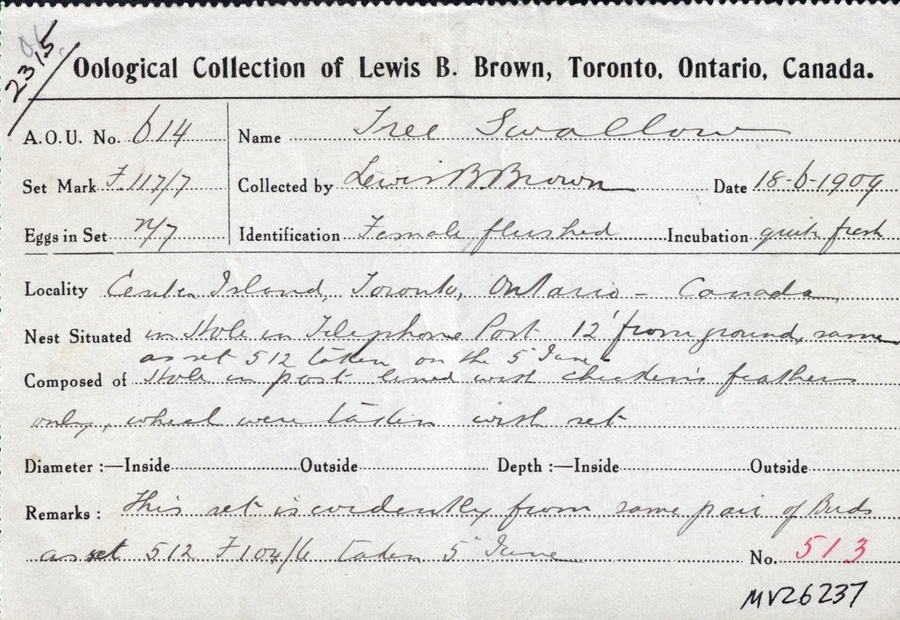 2315
Oological Collection of Lewis B. Brown, Toronto, Ontario, Canada.
A.O.U. No. 614 Name Tree Swallow
Set Mark F.117/7 Collected by Lewis B. Brown Date 18-6-1909
Eggs in Set n/7 Identification Female flushed Incubation quite fresh
Locality Center Island, Toronto, Ontario - Canada
Nest Situated in Hole in Telephone Post 12' from ground, same
as set 512 taken on the 5 June
Composed of Hole in post lined with chicken's feathers
only, which were taken with set
Diameter :—Inside Outside Depth :—Inside Outside
Remarks : This set is evidently from same pair of Birds
as set 512 F104/6 taken 5 June No. 513
MV26237